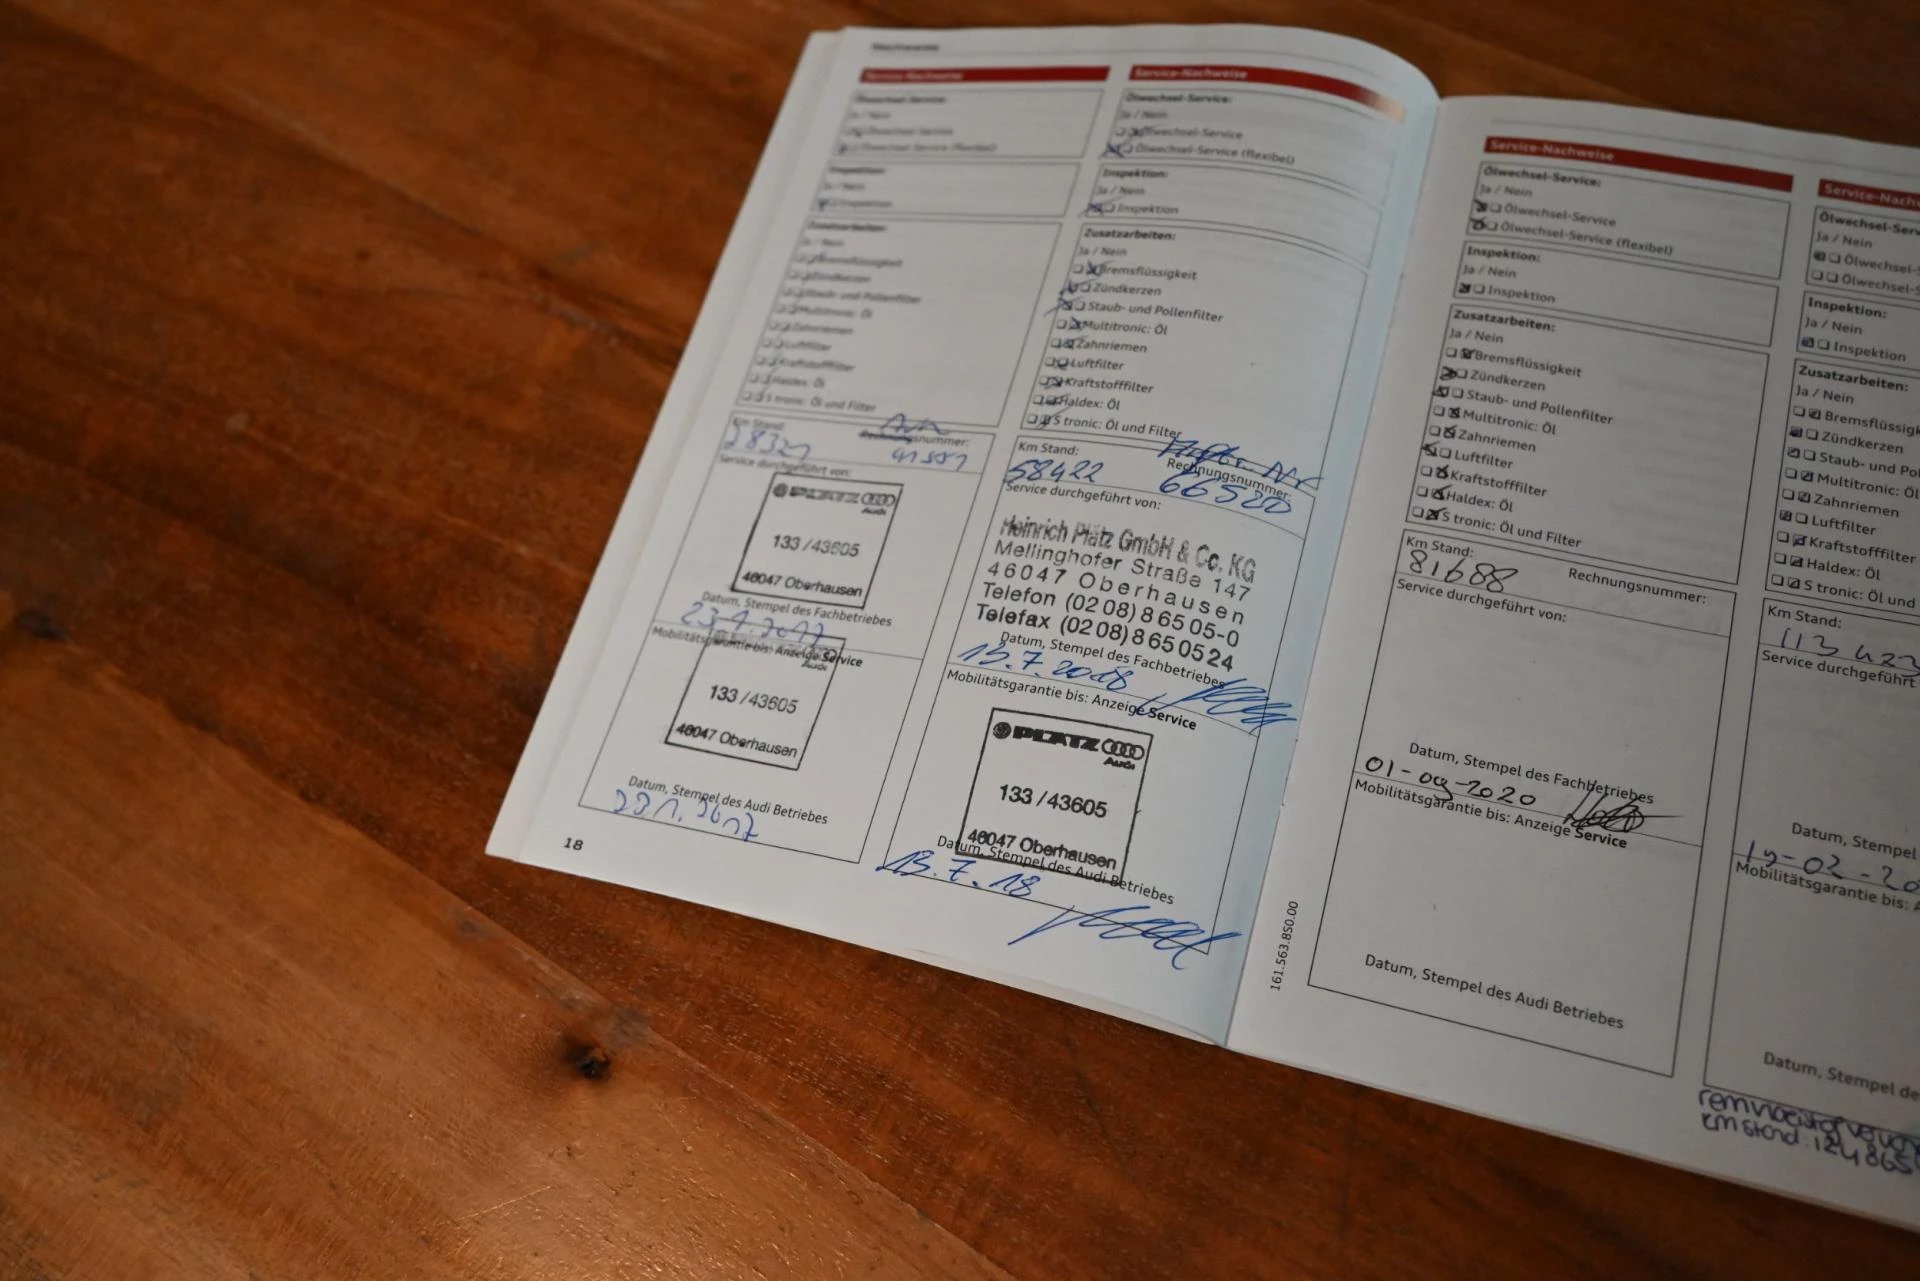 Nachweise
Service-Nachweise
Ölwechsel-Service:
Ja / Nein
Ölwechsel-Service
Ölwechsel-Service (flexibel)
Inspektion:
Ja / Nein
Inspektion
Zusatzarbeiten:
Ja / Nein
Bremsflüssigkeit
Zündkerzen
Staub- und Pollenfilter
Multitronic: Öl
Zahnriemen
Luftfilter
Kraftstofffilter
Haldex: Öl
S tronic: Öl und Filter
Km Stand:
Rechnungsnummer:
28321
41551
Service durchgeführt von:
PLATZ
Audi
133 / 43605
46047 Oberhausen
Datum, Stempel des Fachbetriebes
23.1.2017
Mobilitätsgarantie bis: Anzeige Service
Audi
133 / 43605
46047 Oberhausen
Datum, Stempel des Audi Betriebes
23.1.2017
18
Service-Nachweise
Ölwechsel-Service:
Ja / Nein
Ölwechsel-Service
Ölwechsel-Service (flexibel)
Inspektion:
Ja / Nein
Inspektion
Zusatzarbeiten:
Ja / Nein
Bremsflüssigkeit
Zündkerzen
Staub- und Pollenfilter
Multitronic: Öl
Zahnriemen
Luftfilter
Kraftstofffilter
Haldex: Öl
S tronic: Öl und Filter
Km Stand:
Rechnungsnummer:
58422
66520
Service durchgeführt von:
Heinrich Plätz GmbH & Co. KG
Mellinghofer Straße 147
46047 Oberhausen
Telefon (02 08) 8 65 05-0
Telefax (02 08) 8 65 05 24
Datum, Stempel des Fachbetriebes
13.7.2018
Mobilitätsgarantie bis: Anzeige Service
PLATZ
Audi
133 / 43605
46047 Oberhausen
Datum, Stempel des Audi Betriebes
13.7.18
161.563.8S0.00
Service-Nachweise
Ölwechsel-Service:
Ja / Nein
Ölwechsel-Service
Ölwechsel-Service (flexibel)
Inspektion:
Ja / Nein
Inspektion
Zusatzarbeiten:
Ja / Nein
Bremsflüssigkeit
Zündkerzen
Staub- und Pollenfilter
Multitronic: Öl
Zahnriemen
Luftfilter
Kraftstofffilter
Haldex: Öl
S tronic: Öl und Filter
Km Stand:
Rechnungsnummer:
81688
Service durchgeführt von:
Datum, Stempel des Fachbetriebes
01-09-2020
Mobilitätsgarantie bis: Anzeige Service
Datum, Stempel des Audi Betriebes
Service-Nachw
Ölwechsel-Serv
Ja / Nein
Ölwechsel-S
Ölwechsel-S
Inspektion:
Ja / Nein
Inspektion
Zusatzarbeiten:
Ja / Nein
Bremsflüssigk
Zündkerzen
Staub- und Po
Multitronic: Öl
Zahnriemen
Luftfilter
Kraftstofffilter
Haldex: Öl
S tronic: Öl und
Km Stand:
113423
Service durchgeführt
Datum, Stempel
19-02-20
Mobilitätsgarantie bis: A
Datum, Stempel de
km stand: 124865